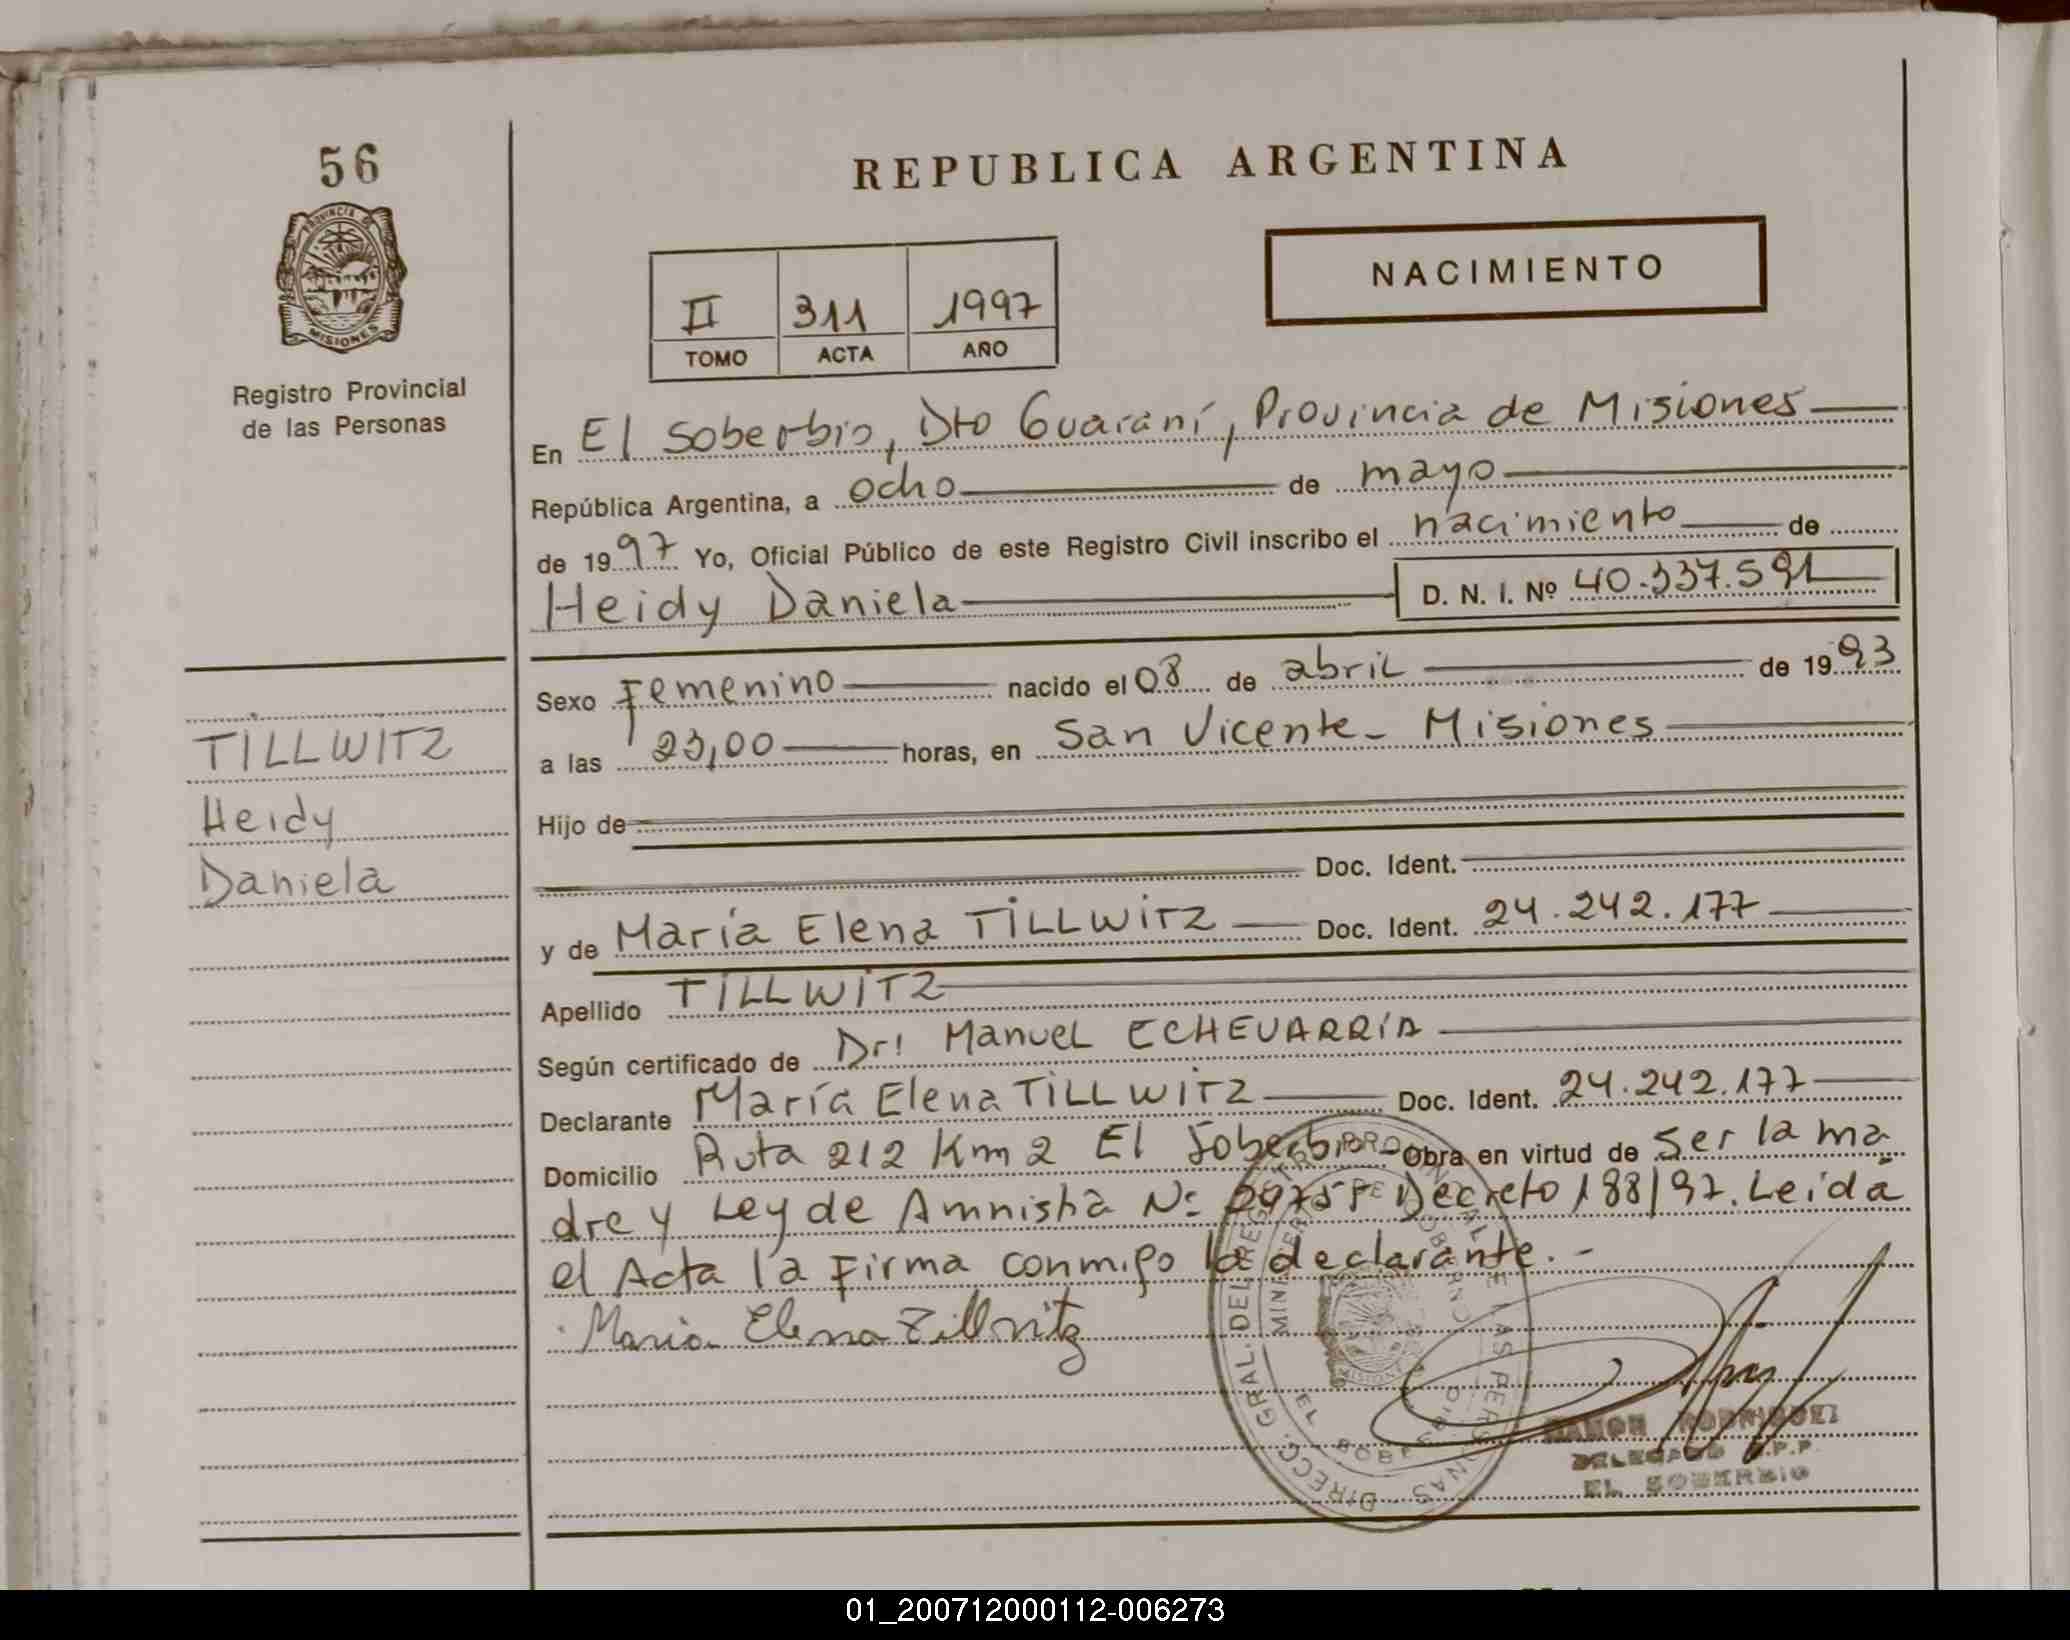 56
REPUBLICA ARGENTINA
PROVINCIA DE
MISIONES
Registro Provincial
de las Personas
NACIMIENTO
II 311 1997
TOMO ACTA AÑO
En El Soberbio, Dto Guaraní, Provincia de Misiones
República Argentina, a ocho de mayo
de 1997 Yo, Oficial Público de este Registro Civil inscribo el nacimiento de
Heidy Daniela D. N. I. Nº 40.337.591
Sexo Femenino nacido el 08 de abril de 1993
a las 23,00 horas, en San Vicente - Misiones
Hijo de
Doc. Ident.
y de María Elena TILLWITZ Doc. Ident. 24.242.177
Apellido TILLWITZ
Según certificado de Dr: Manuel ECHEVARRÍA
Declarante María Elena TILLWITZ Doc. Ident. 24.242.177
Domicilio Ruta 212 Km 2 El Soberbio Obra en virtud de Ser la ma
dre y Ley de Amnistia Nº Decreto 188/97. Leida
el Acta la Firma conmigo la declarante.-
Maria Elena Tillwitz
TILLWITZ
Heidy
Daniela
DIRECC. GRAL. DEL REG. PROVINCIAL DE LAS PERSONAS
EL SOBERBIO
MISIONES
RAMON RODRIGUEZ
DELEGADO R.P.P.
EL SOBERBIO
01_200712000112-006273